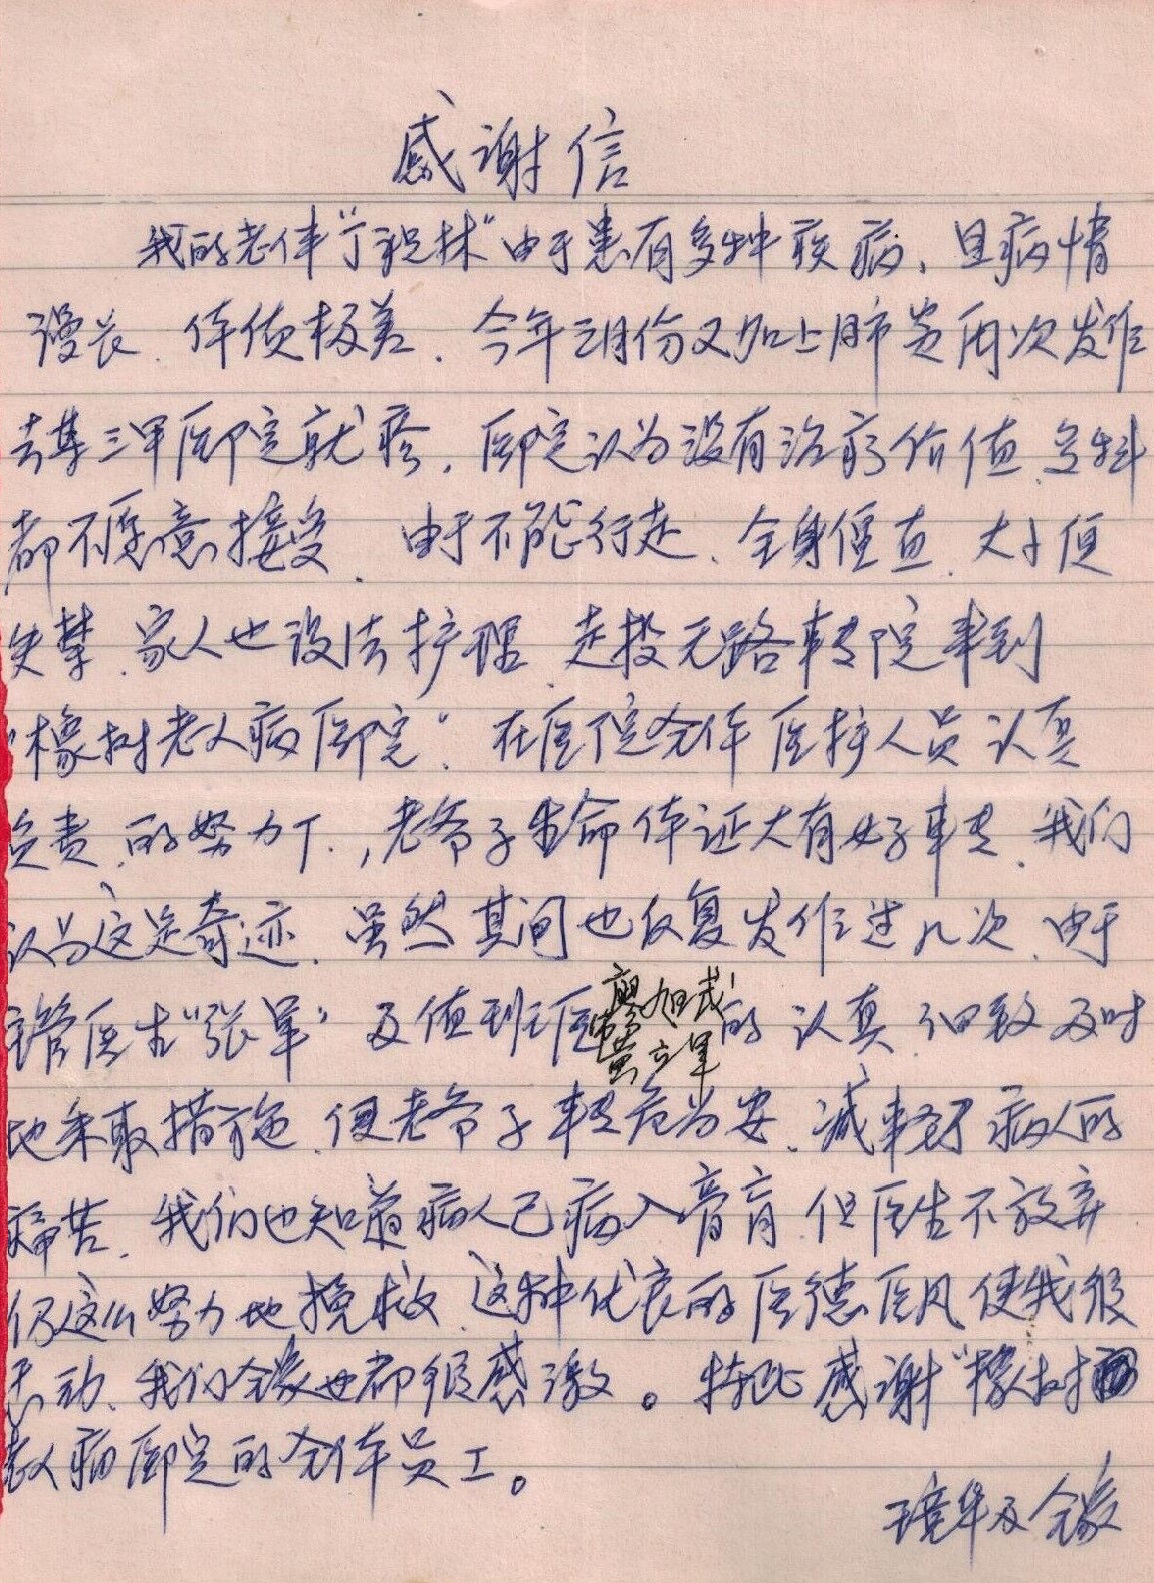 感谢信
我的老伴"丁积林"由于患有多种疾病、且病情
漫长、体质极差、今年三月份又加上肺炎两次发作
去某三甲医院就疹，医院认为没有治疗价值、各科
都不愿意接受、由于不能行走、全身僵直、大小便
失禁、家人也没法护理、走投无路转院来到
"橡树老人病医院"在医院全体医护人员认真
负责、的努力下.，老爷子生命体证大有好转、我们
认为这是奇迹、虽然其间也反复发作过几次、由于
主管医生"张军"及值班医 廖旭武 的认真、细致及时
黄立军
地采取措施、使老爷子转危为安、减轻了病人的
痛苦、我们也知道病人已病入膏肓、但医生不放弃
仍这么努力地挽救、这种优良的医德医风使我很
感动、我们全家也都很感激。特此感谢"橡树
老人病医院的全体员工。
及全家